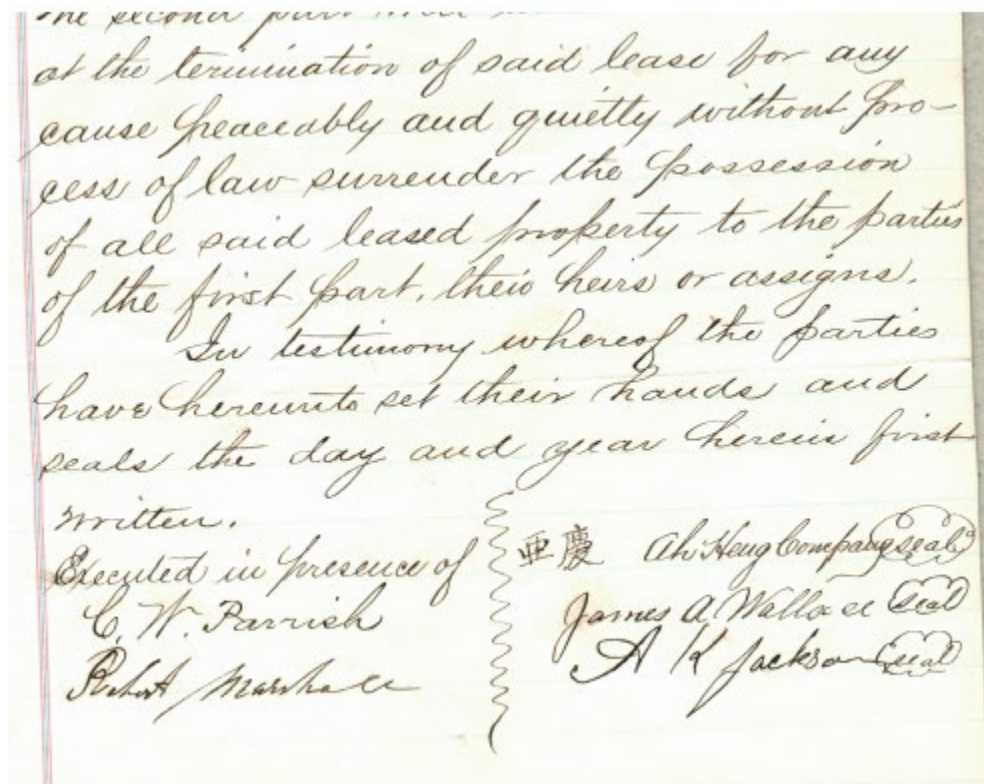 the second part
at the termination of said lease for any
cause peaceably and quietly without pro-
cess of law surrender the possession
of all said leased property to the parties
of the first part, their heirs or assigns.
In testimony whereof the parties
have hereunto set their hands and
seals the day and year herein first
written.
Executed in presence of
C. W. Parrish
Robert Marshall
亜慶 Ah Heng Company seal
James A. Wallace seal
A K Jackson seal